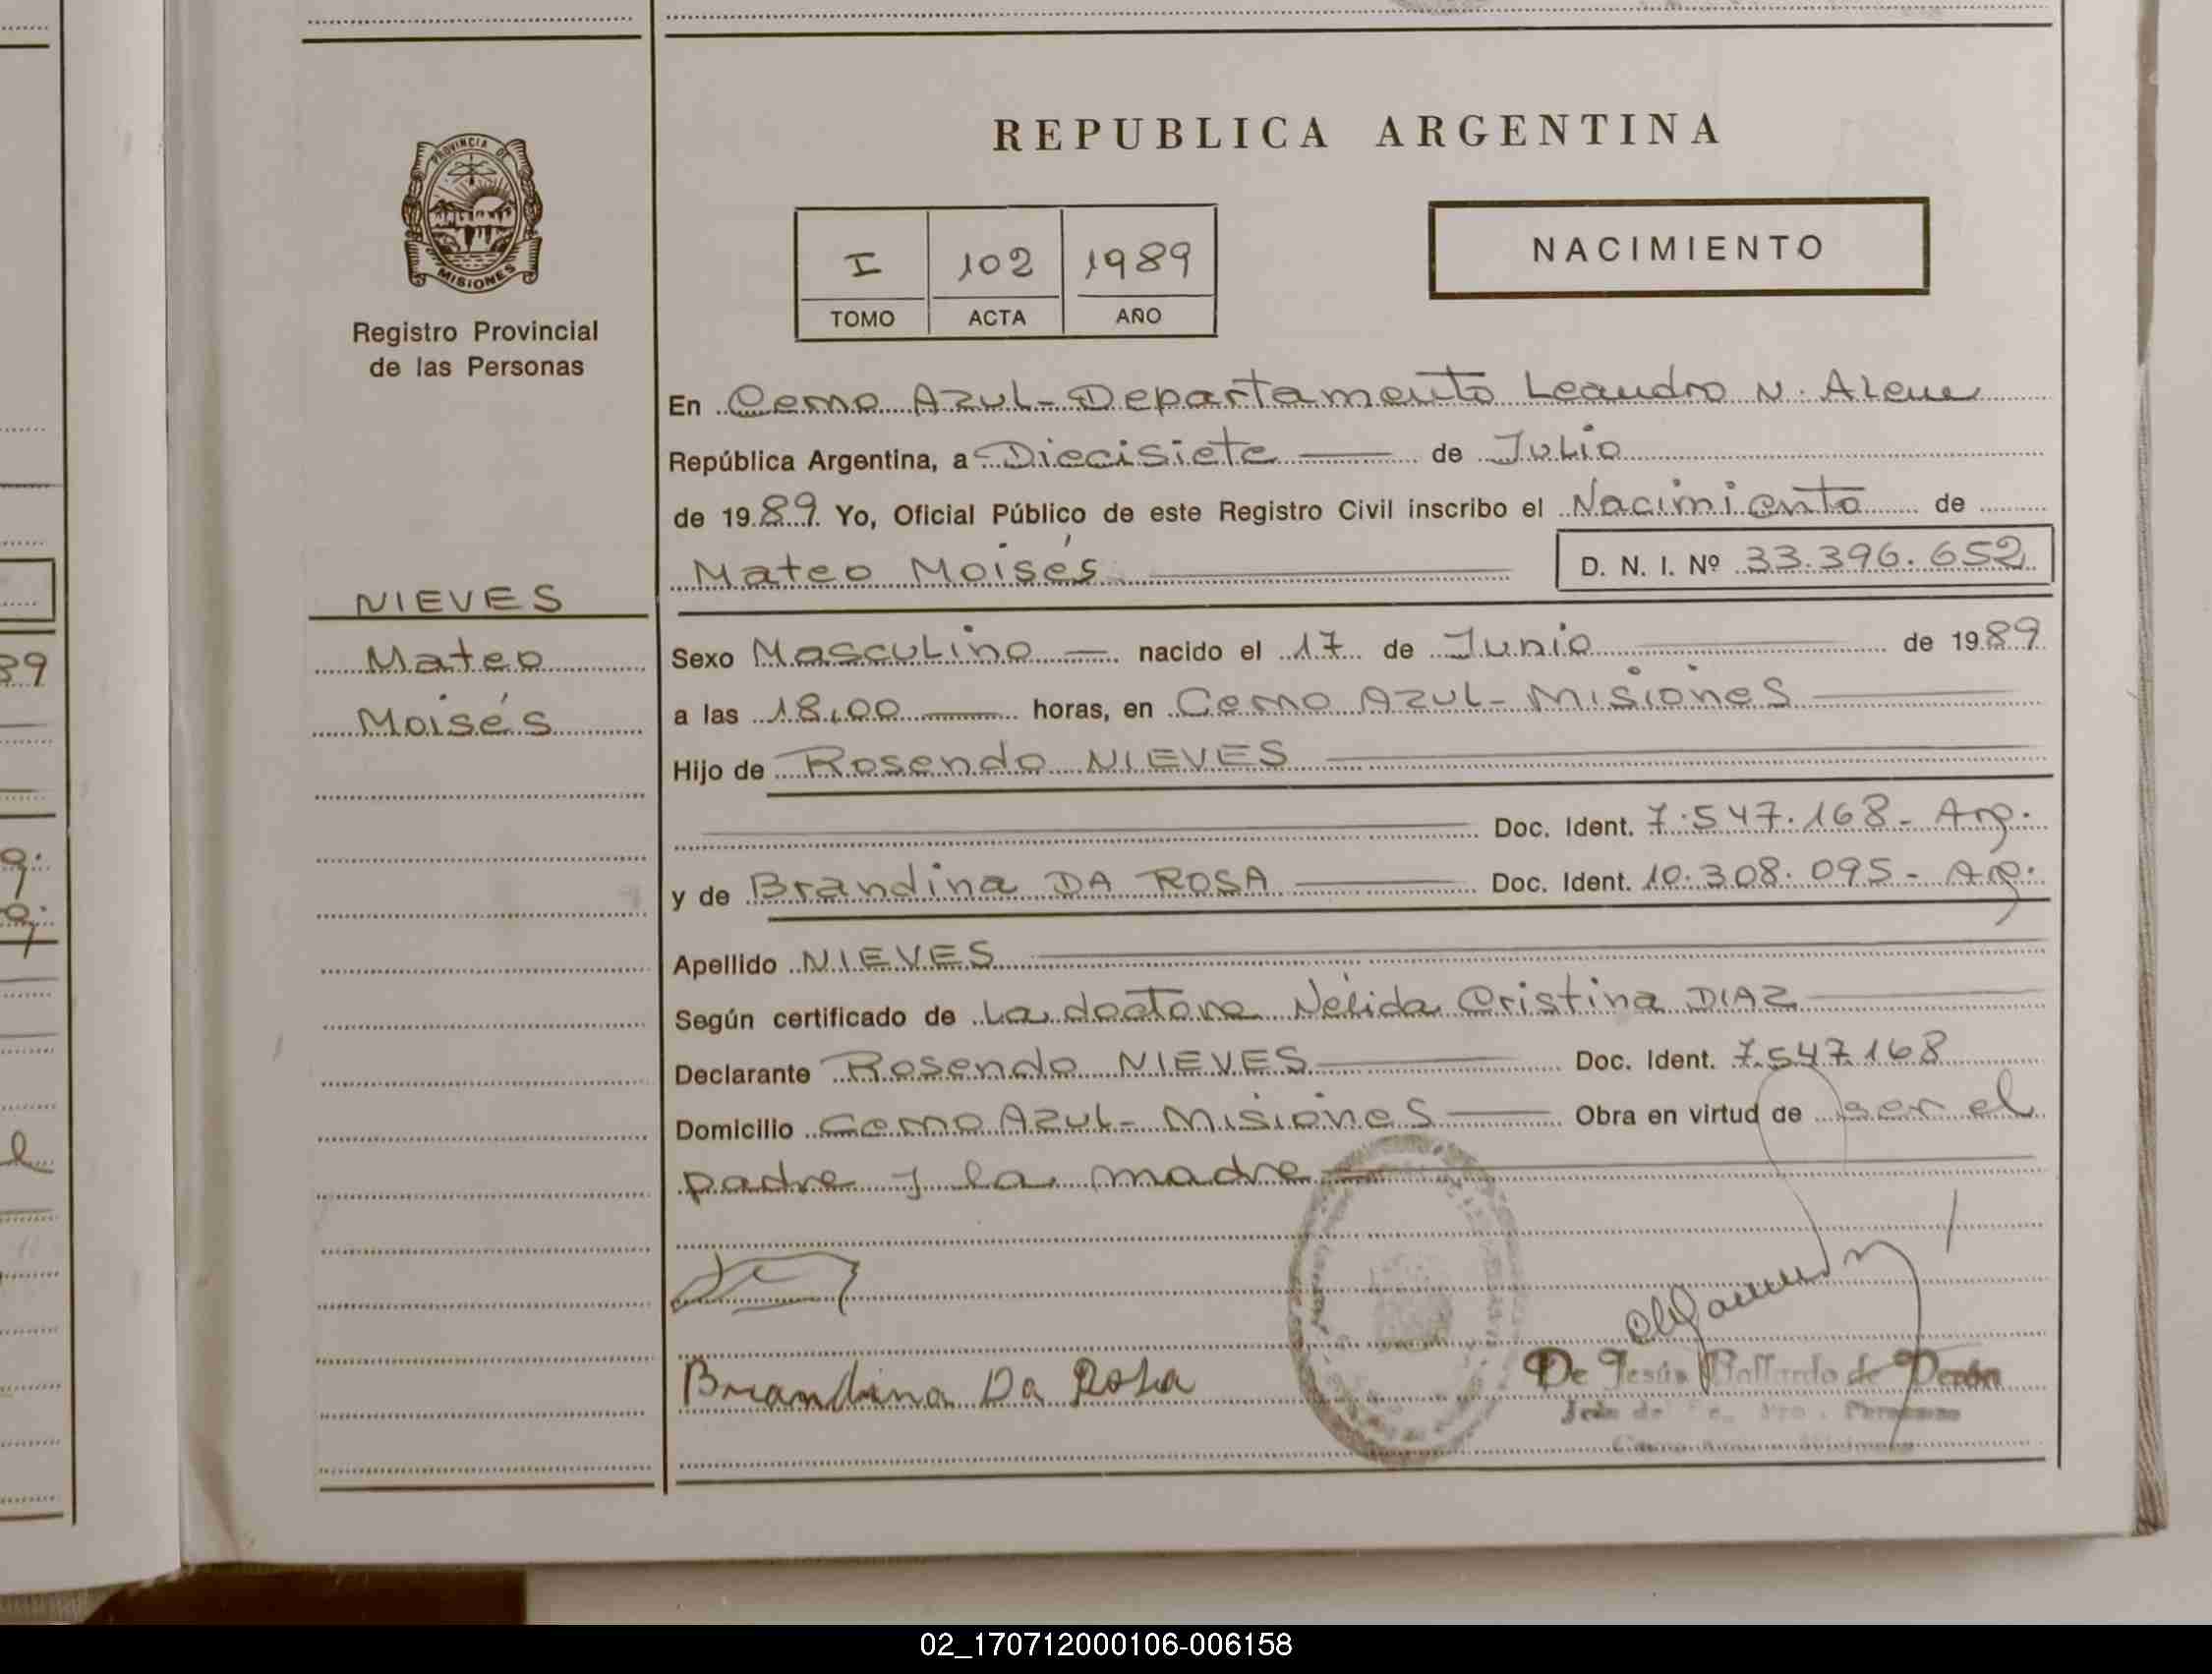 REPUBLICA ARGENTINA
PROVINCIA DE
MISIONES
Registro Provincial
de las Personas
I 102 1989
TOMO ACTA AÑO
NACIMIENTO
En Cerro Azul - Departamento Leandro N. Alem
República Argentina, a Diecisiete de Julio
de 1989 Yo, Oficial Público de este Registro Civil inscribo el Nacimiento de
Mateo Moisés D. N. I. Nº 33.396.652
NIEVES
Mateo
Moisés
Sexo Masculino nacido el 17 de Junio de 1989
a las 18,00 horas, en Cerro Azul - Misiones
Hijo de Rosendo NIEVES
Doc. Ident. 7.547.168 - Arg.
y de Brandina DA ROSA Doc. Ident. 10.308.095 - Arg.
Apellido NIEVES
Según certificado de La doctora Nélida Cristina DIAZ
Declarante Rosendo NIEVES Doc. Ident. 7.547.168
Domicilio Cerro Azul - Misiones Obra en virtud de ser el
padre y la madre
Brandina Da Rosa
De Jesús de
39
02_170712000106-006158